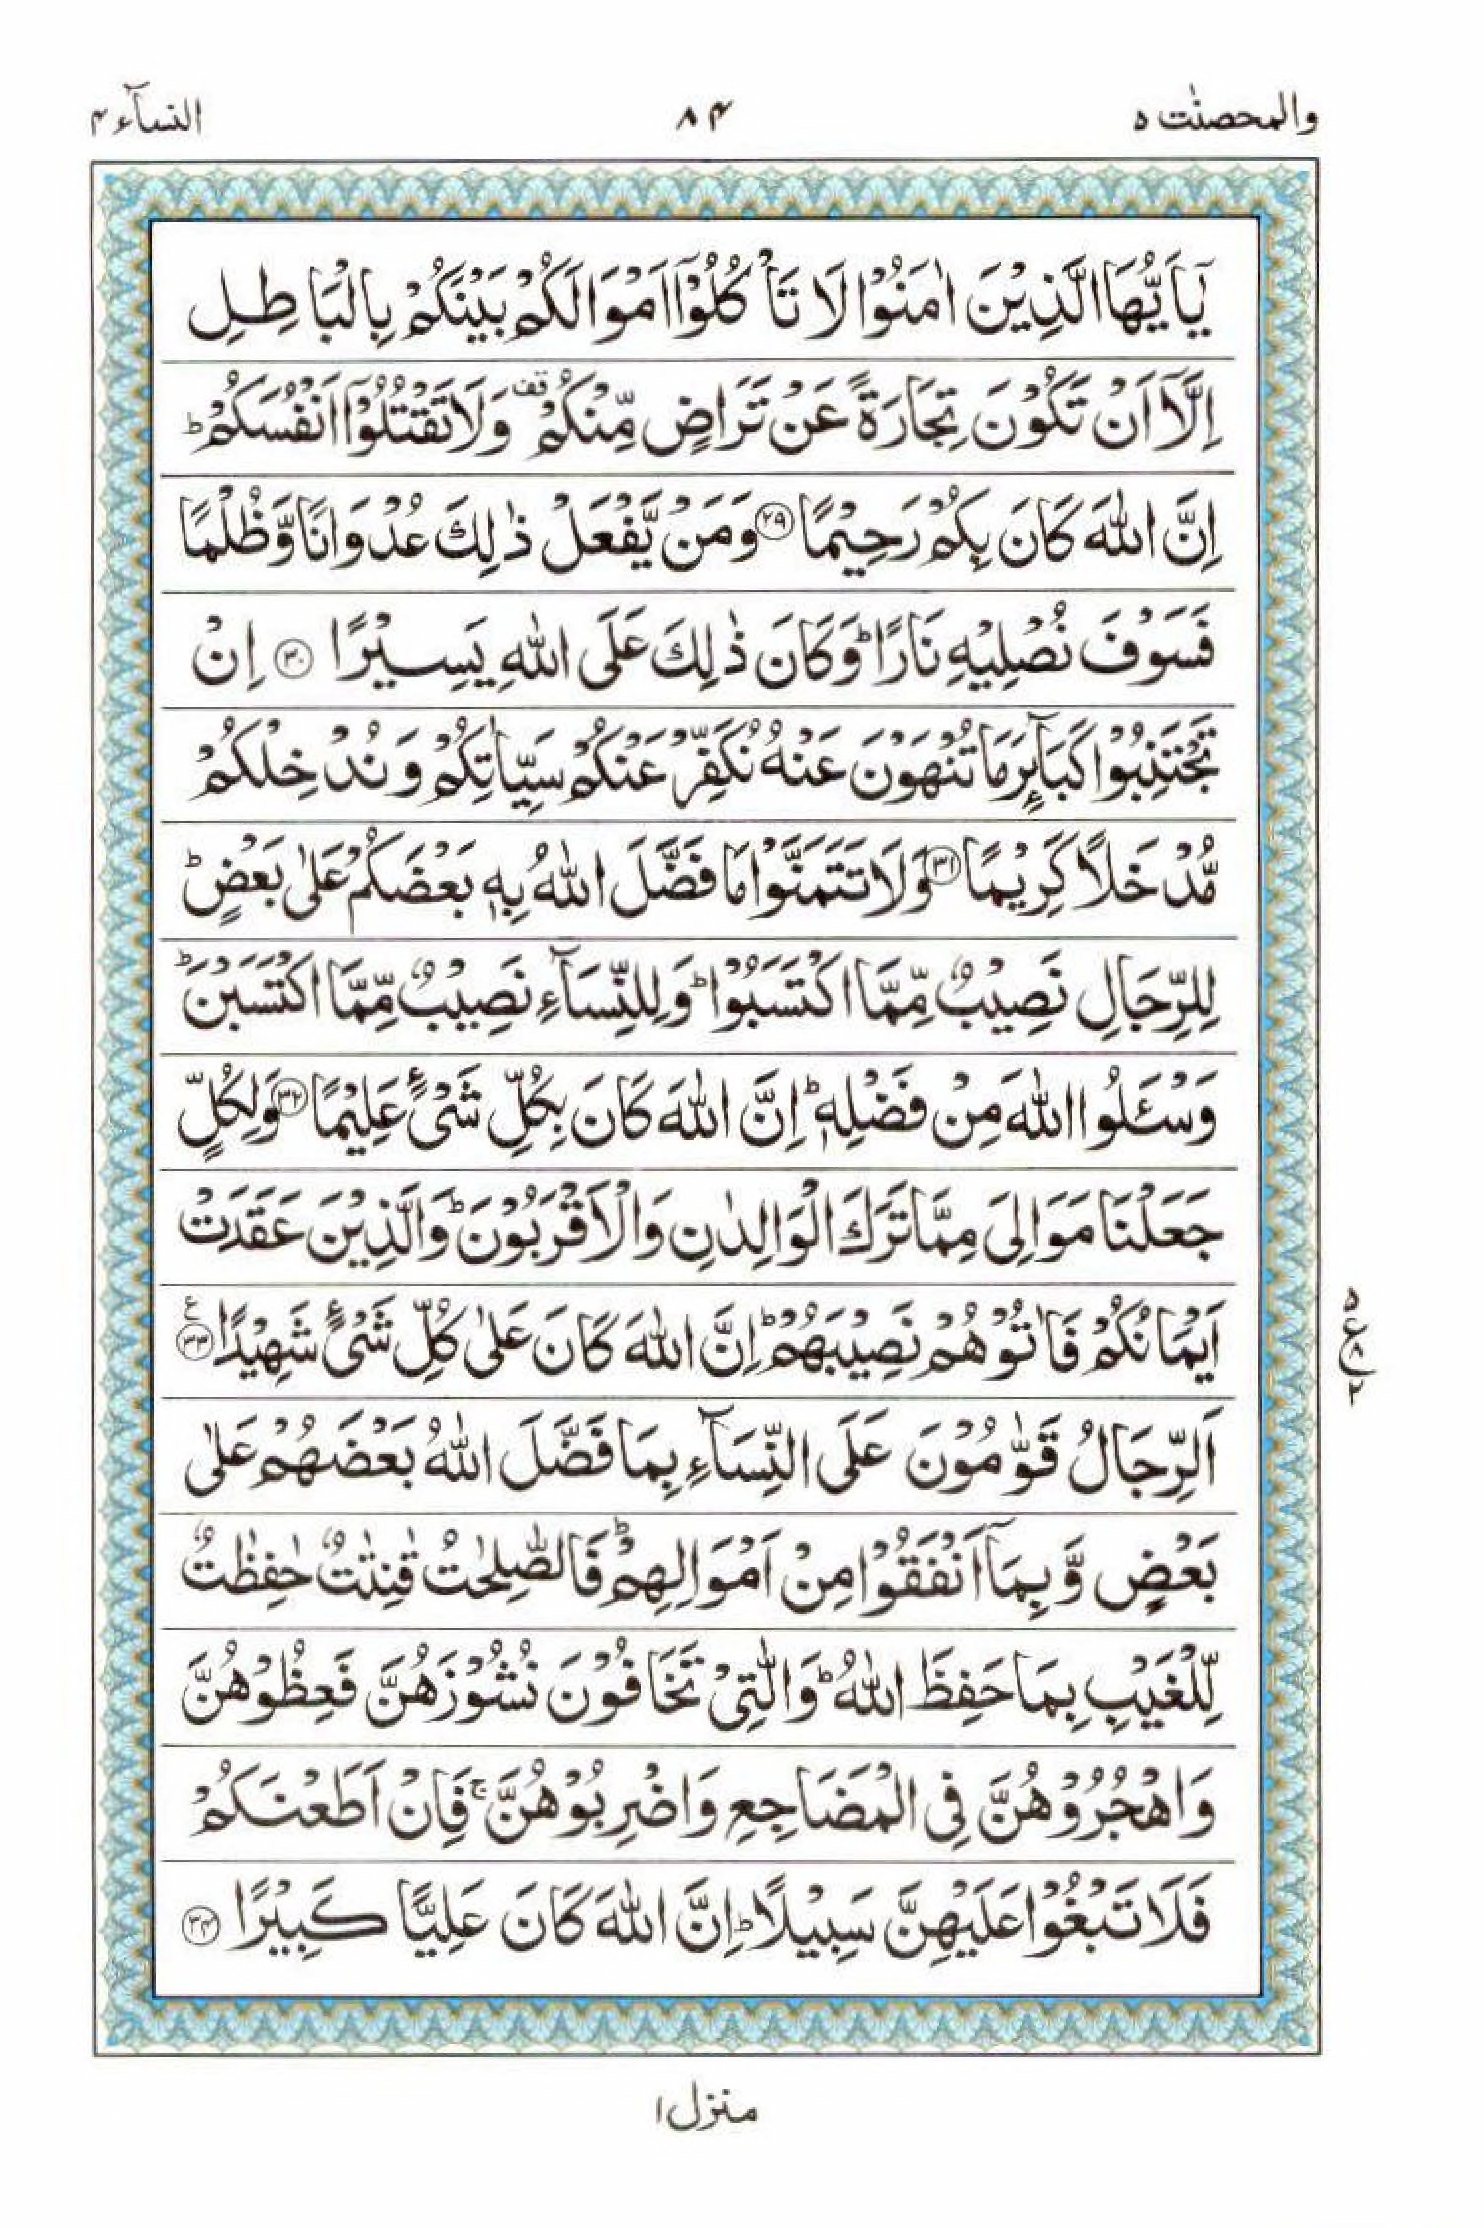 والمحصنٰت ۵ ۸۴ النسآء ۴
يٰٓاَيُّهَا الَّذِيْنَ اٰمَنُوْا لَا تَاْكُلُوْٓا اَمْوَالَكُمْ بَيْنَكُمْ بِالْبَاطِلِ
اِلَّآ اَنْ تَكُوْنَ تِجَارَةً عَنْ تَرَاضٍ مِّنْكُمْ ۟ قف وَلَا تَقْتُلُوْٓا اَنْفُسَكُمْ ؕ
اِنَّ اللّٰهَ كَانَ بِكُمْ رَحِيْمًا ۲۹ وَمَنْ يَّفْعَلْ ذٰلِكَ عُدْوَانًا وَّظُلْمًا
فَسَوْفَ نُصْلِيْهِ نَارًا ؕ وَكَانَ ذٰلِكَ عَلَى اللّٰهِ يَسِيْرًا ۳۰ اِنْ
تَجْتَنِبُوْا كَبَآئِرَ مَا تُنْهَوْنَ عَنْهُ نُكَفِّرْ عَنْكُمْ سَيِّاٰتِكُمْ وَنُدْخِلْكُمْ
مُّدْخَلًا كَرِيْمًا ۳۱ وَلَا تَتَمَنَّوْا مَا فَضَّلَ اللّٰهُ بِهٖ بَعْضَكُمْ عَلٰى بَعْضٍ ؕ
لِلرِّجَالِ نَصِيْبٌ مِّمَّا اكْتَسَبُوْا ؕ وَلِلنِّسَآءِ نَصِيْبٌ مِّمَّا اكْتَسَبْنَ ؕ
وَسْـَٔلُوا اللّٰهَ مِنْ فَضْلِهٖ ؕ اِنَّ اللّٰهَ كَانَ بِكُلِّ شَىْءٍ عَلِيْمًا ۳۲ وَلِكُلٍّ
جَعَلْنَا مَوَالِىَ مِمَّا تَرَكَ الْوَالِدٰنِ وَالْاَقْرَبُوْنَ ؕ وَالَّذِيْنَ عَقَدَتْ
اَيْمَانُكُمْ فَاٰتُوْهُمْ نَصِيْبَهُمْ ؕ اِنَّ اللّٰهَ كَانَ عَلٰى كُلِّ شَىْءٍ شَهِيْدًا ۳۳ ع
۵ ع ۸ ۲
اَلرِّجَالُ قَوّٰمُوْنَ عَلَى النِّسَآءِ بِمَا فَضَّلَ اللّٰهُ بَعْضَهُمْ عَلٰى
بَعْضٍ وَّبِمَآ اَنْفَقُوْا مِنْ اَمْوَالِهِمْ ؕ فَالصّٰلِحٰتُ قٰنِتٰتٌ حٰفِظٰتٌ
لِّلْغَيْبِ بِمَا حَفِظَ اللّٰهُ ؕ وَالّٰتِىْ تَخَافُوْنَ نُشُوْزَهُنَّ فَعِظُوْهُنَّ
وَاهْجُرُوْهُنَّ فِى الْمَضَاجِعِ وَاضْرِبُوْهُنَّ ۚ فَاِنْ اَطَعْنَكُمْ
فَلَا تَبْغُوْا عَلَيْهِنَّ سَبِيْلًا ؕ اِنَّ اللّٰهَ كَانَ عَلِيًّا كَبِيْرًا ۳۴
منزل ۱